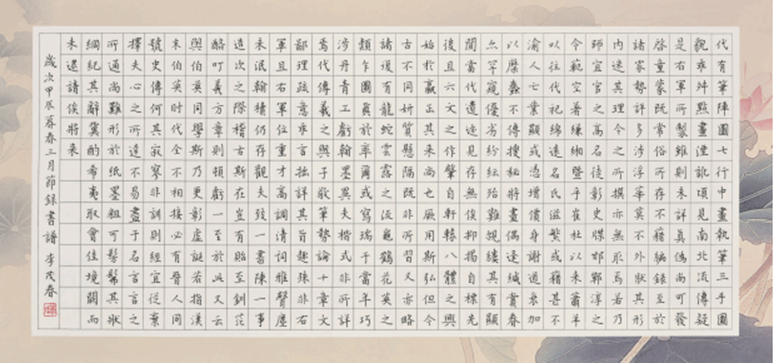 代有筆陣圖七行中畫執筆三手圖
貌乖舛點畫湮訛頃見南北流傳疑
是右軍所製雖則未詳真偽尚可發
啓童蒙既常俗所存不藉編錄至於
諸家勢評多涉浮華莫不外狀其形
内迷其理今之所撰亦無取焉若乃
師宜官之高名徒彰史牒邯鄲淳之
令範空著縑緗暨乎崔杜以來蕭羊
以往代祀綿遠名氏滋繁或藉甚不
渝人亡業顯或憑增價身謝道衰加
以糜蠹不傳搜秘將盡偶逢緘賞
亦罕窺優劣紛紜殆難覼縷其有顯
聞當代遺跡見存無俟抑揚自標先
後且六文之作肇自軒轅八體之興
始於嬴正其來尚也厥用斯弘但今
古不同妍質懸隔既非所習又亦略
諸復有龍蛇雲露之流龜鶴花英之
類乍圖真於率爾或寫瑞於當年巧
涉丹青工虧翰墨異夫楷式非所詳
焉代傳羲之與子敬筆勢論十章文
鄙理疏意乖言拙詳其旨趣殊非右
軍且右軍位重才高調清詞雅聲塵
未泯翰牘仍存觀夫致一書陳一事
造次之際稽古斯在豈有貽
義方章則頓虧一至於此又云
與伯英同學斯乃更彰虛誕若指漢
末伯英時代全不相接必有晉人同
號史傳何其寂寥非訓則經宜從棄
擇夫心之所達不易盡於名言言之
所通尚難形於紙墨粗可髣髴其狀
綱紀其辭冀酌希夷取會佳境闕而
未逮請俟將來
歲次甲辰暮春三月節錄書譜 李茂春